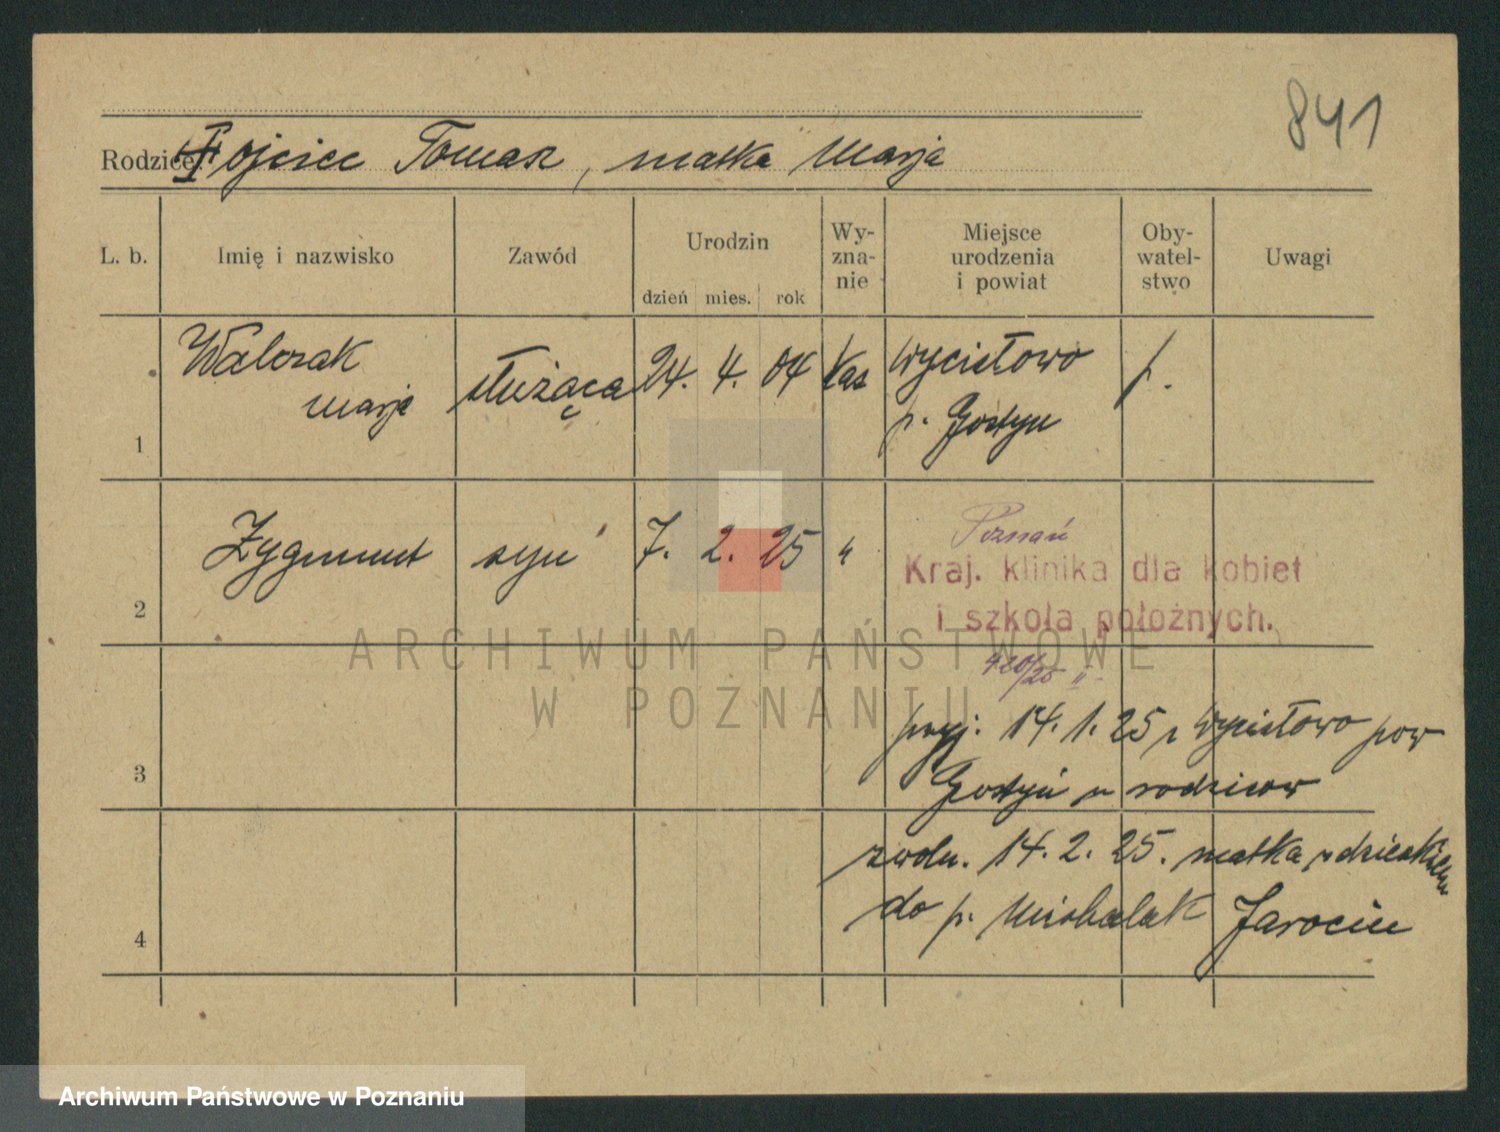 841
Rodzice: ojciec Tomasz, matka Marja
L. b. Imię i nazwisko Zawód Urodzin dzień mies. rok Wy-zna-nie Miejsce urodzenia i powiat Oby-watel-stwo Uwagi
1 Walczak Marja służąca 24. 4. 04 kat Wycisłowo p. Gostyń p.
2 Zygmunt syn 7. 2. 25 " Poznań
Kraj. klinika dla kobiet
i szkoła położnych.
420/25 II
3
przyj. 14. 1. 25 z Wycisłowo pow
Gostyń u rodziców
4
zwoln. 14. 2. 25. matka z dzieckiem
do p. Michalak Jarocin
ARCHIWUM PAŃSTWOWE
W POZNANIU
Archiwum Państwowe w Poznaniu